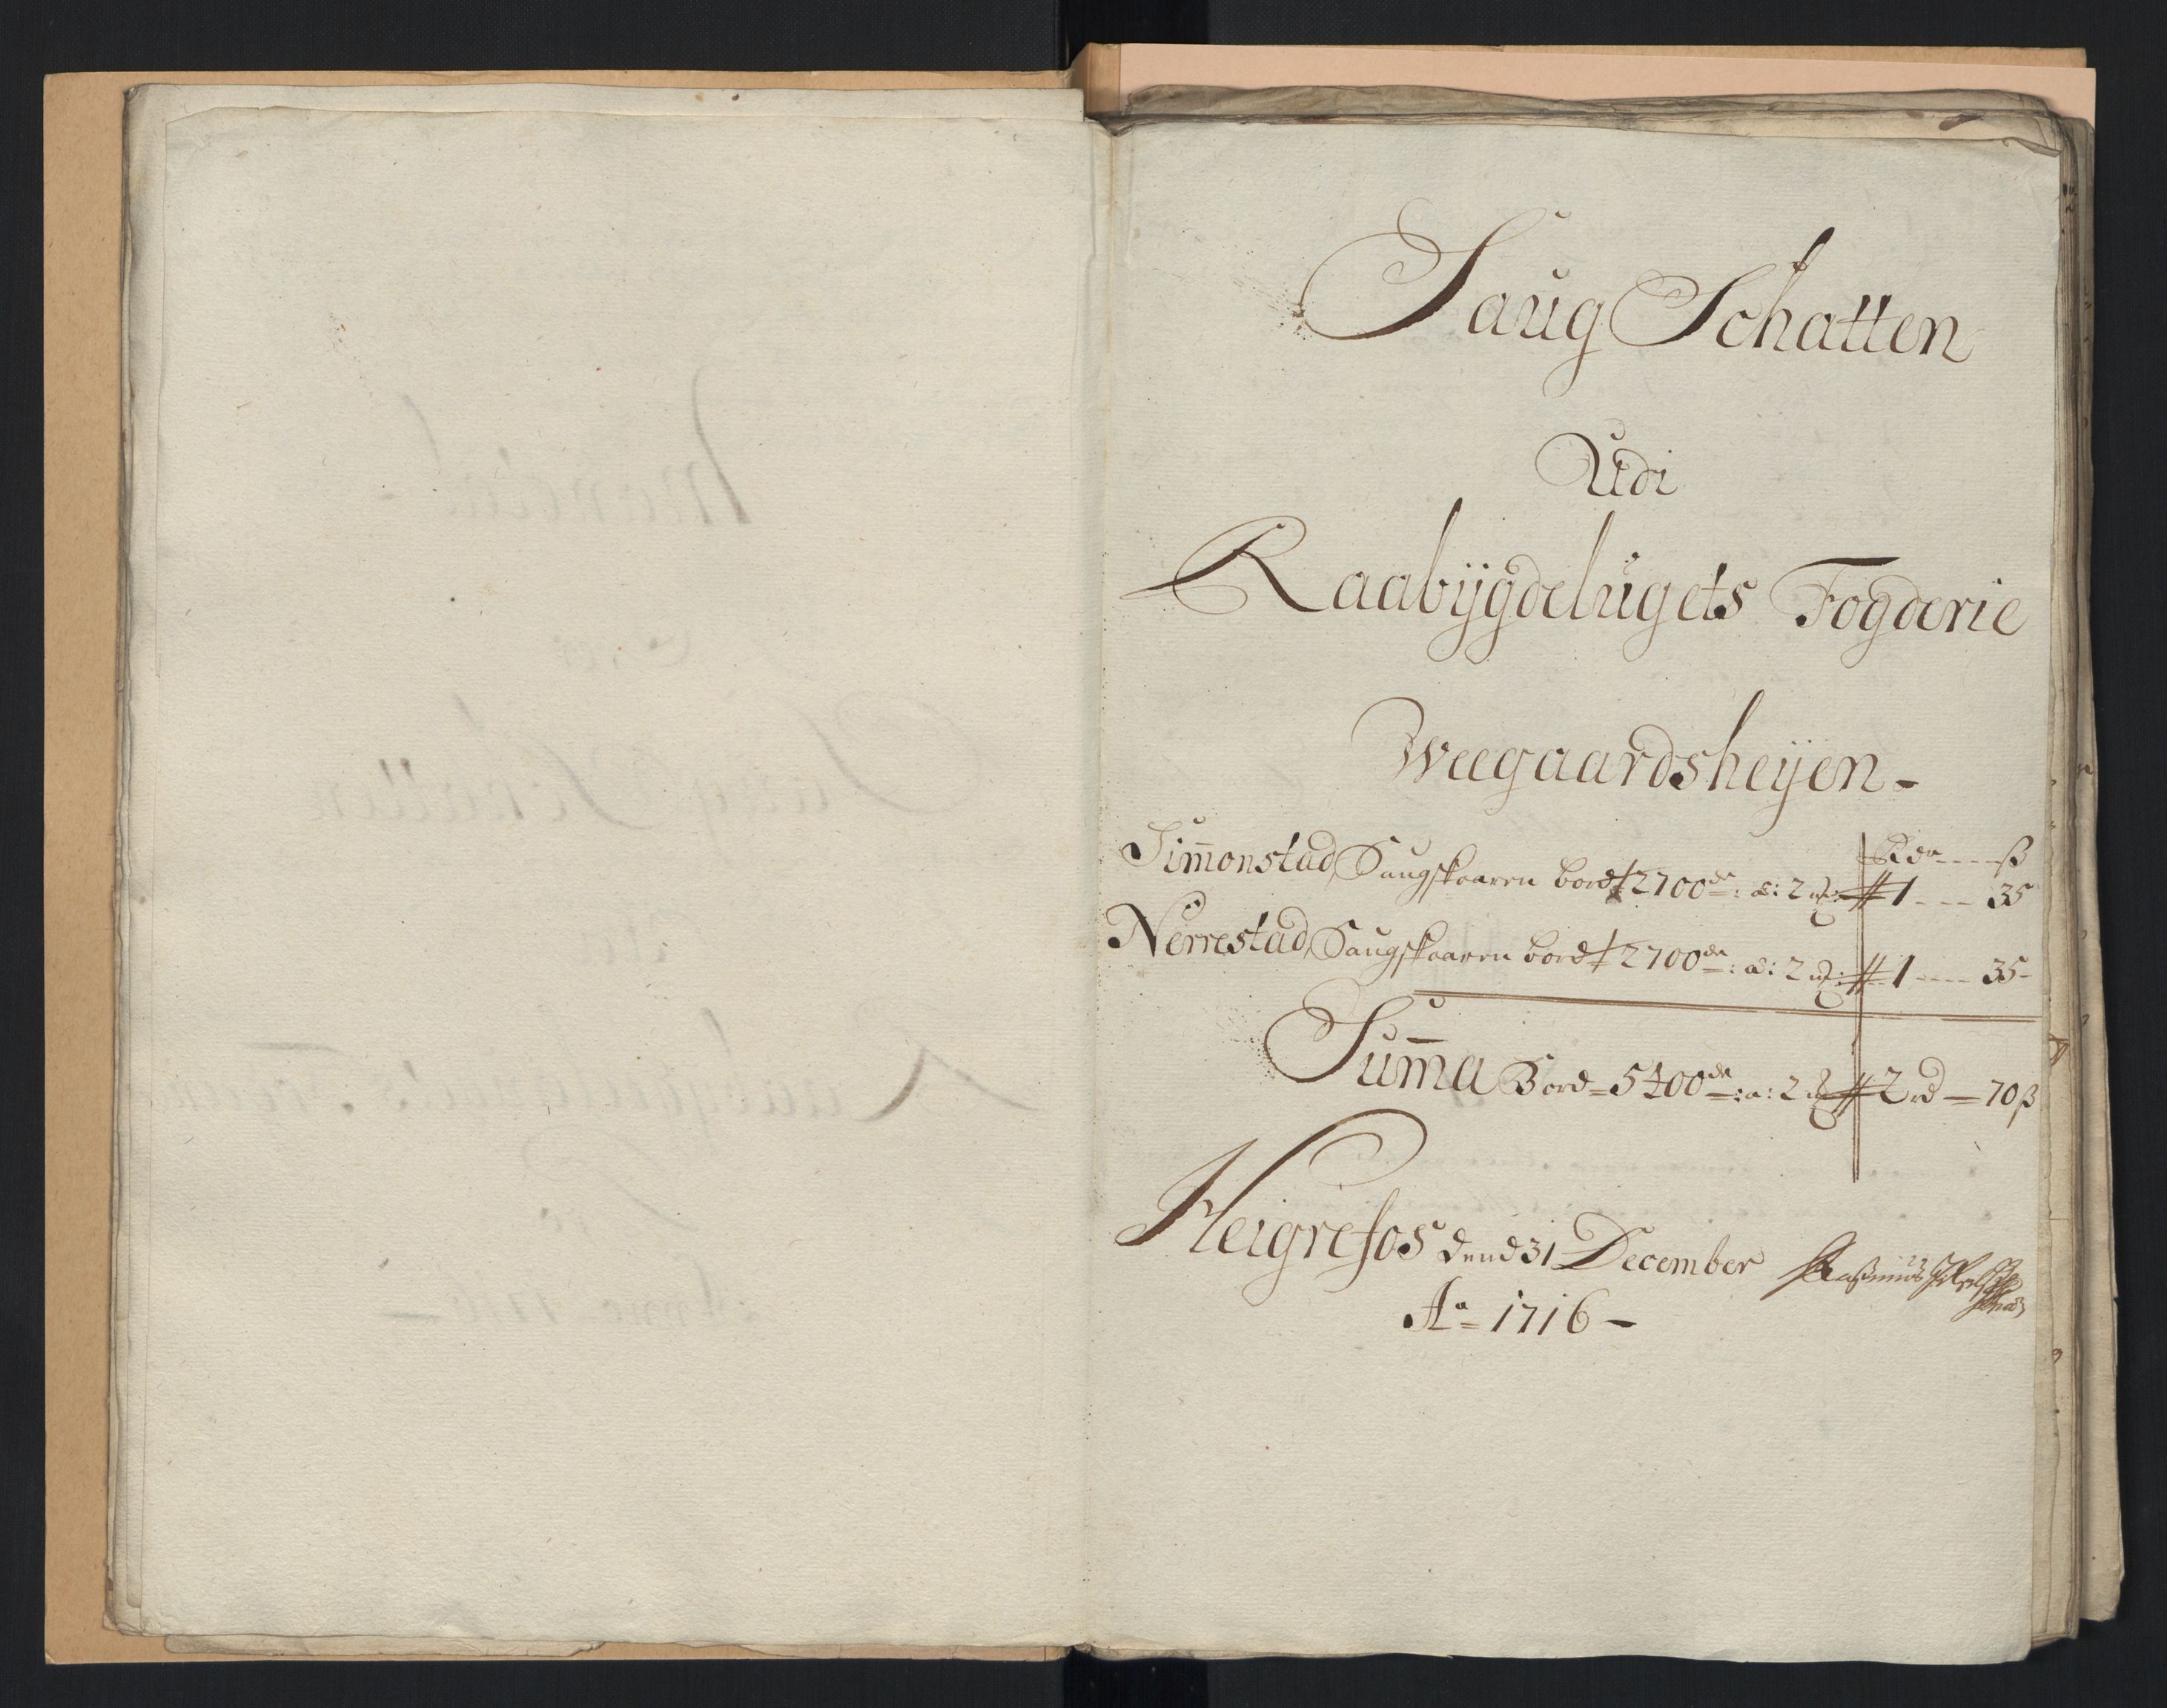 Saug Schatten
Udi
Raabÿgdelugets Fogderie
Weegaardsheÿen -
Rdr ---- ß
Simonstad Saugskaaren bord 2700 de: a: 2 1 --- 35
Nerrestad Saugskaaren bord 2700 de: a: 2 1 ---- 35 -
Suma Bord = 5400 de: a: 2 2 rd — 70 ß
Heigrefos dend 31 December
Ao = 1716 -